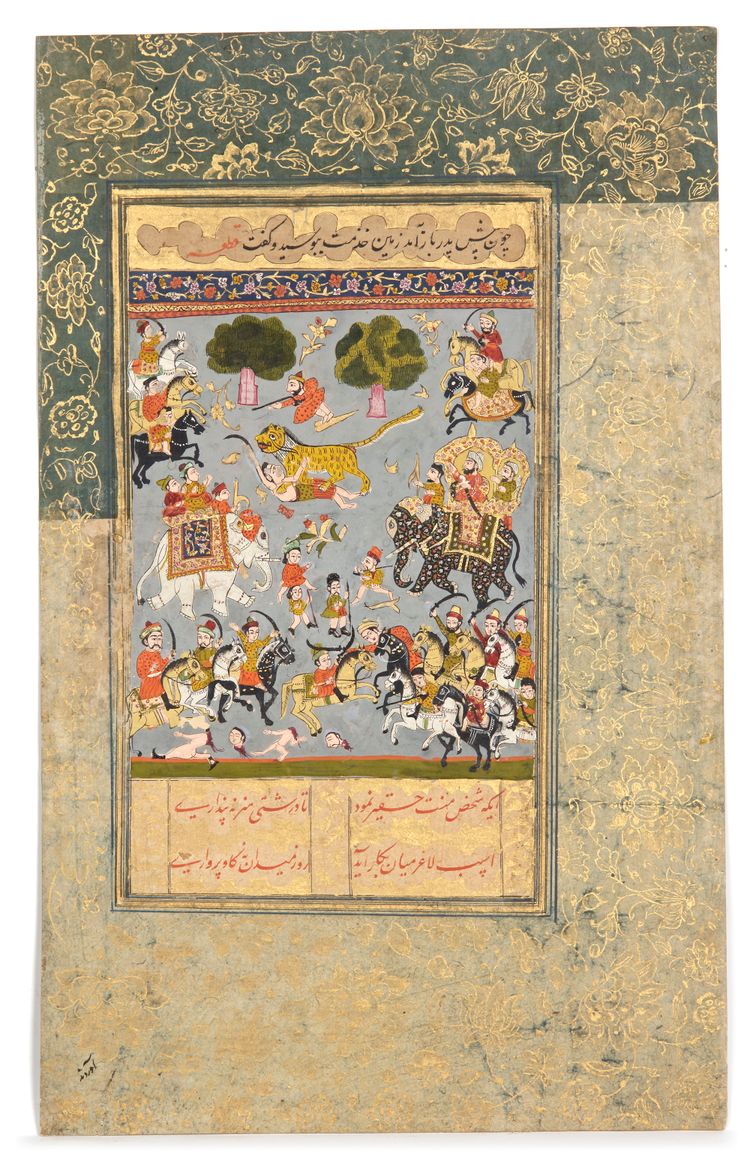 چون پیش پدر باز آمد زمین خدمت ببوسید و گفت قطعه
ایکه شخص منت حقیر نمود تا درشتی هنر نه پنداری
اسب لاغر میان بکار آید روز میدان نه گاو پرواری